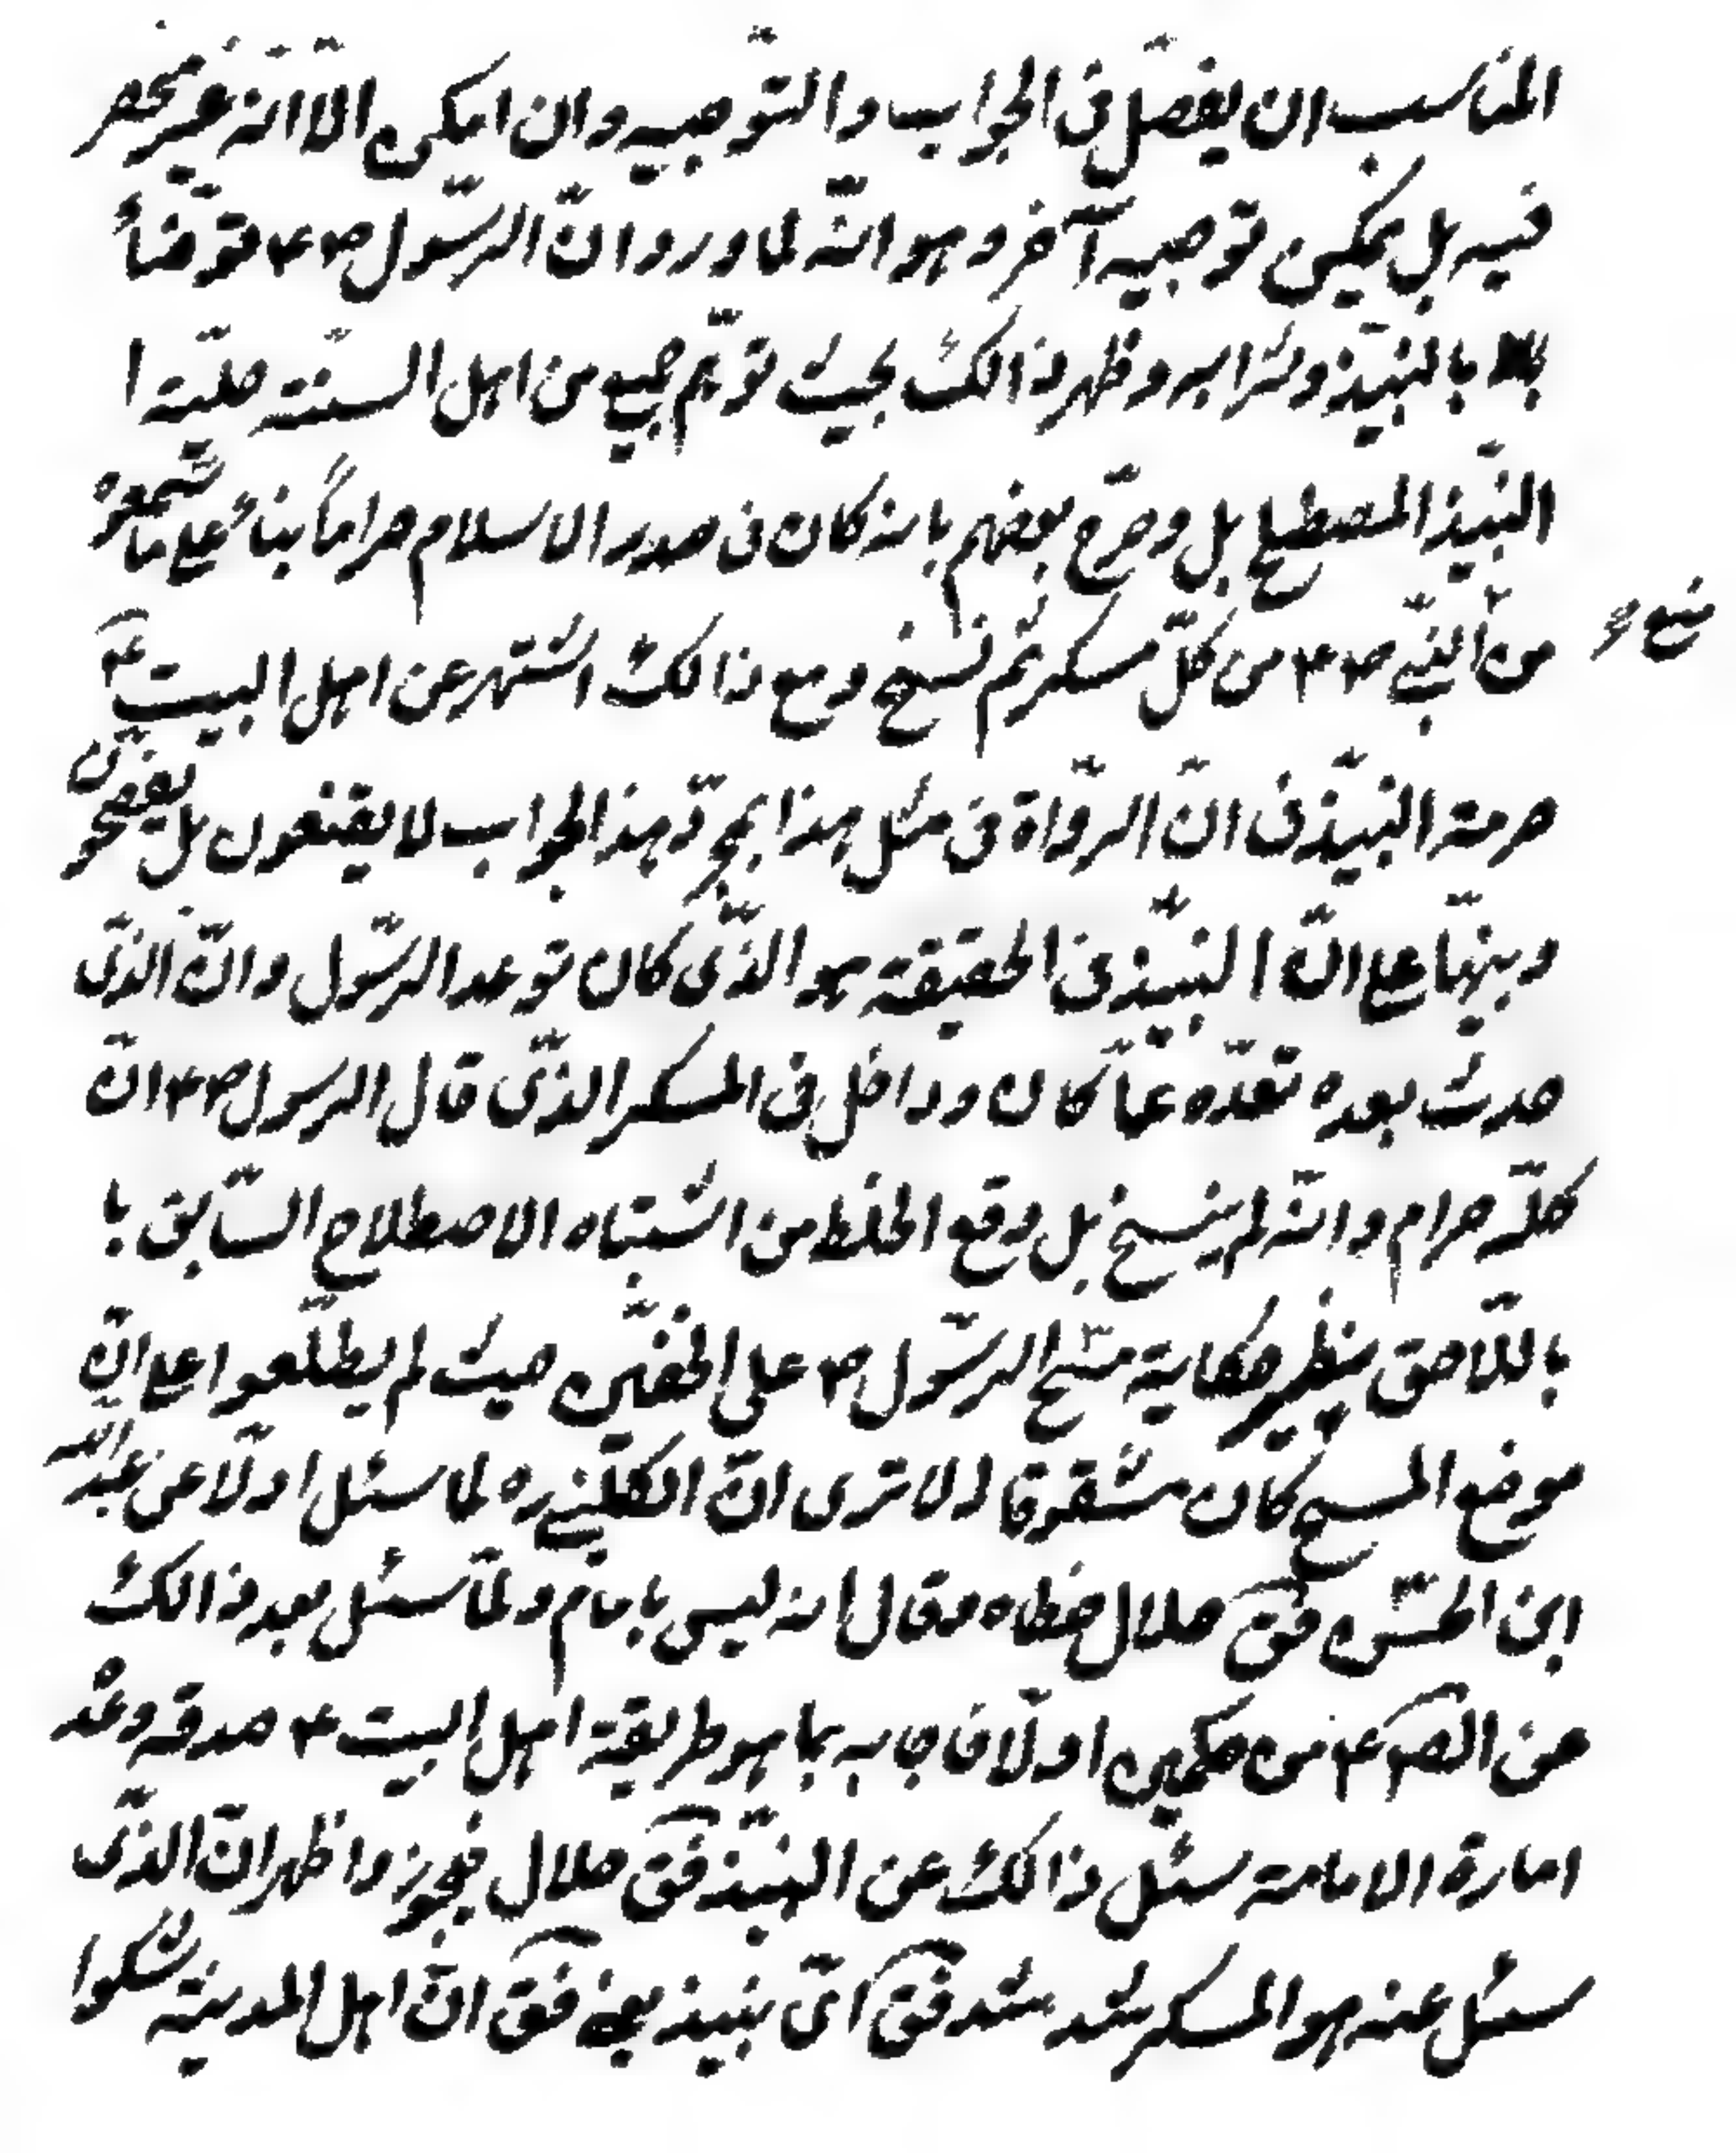 المناسب ان يفصّل فى الجواب والتوّجيه وان امكن الّا انّه غير منحصر
فيه بل يمكن توجيه آخر وهو انّه لما ورد انّ الرسّول ص ع م توّضأ
بالنبيّذ وشرابه وظهر ذالك بحيث توّهم جمع من اهل السنّته حليّته ا
النبيّذ المصطلح بل وصرّح بعضهم بانه كان فى صدر الاسلام حراماً بناءً على ما سمعوه
من النبّى ص ع م من كلّ مسكر ثم نسخ ومع ذالك اشتهر عن اهل البيت ع
منع
حرمة النبيّذ فى انّ الروّاة فى مثل هذا بمجرّد هذا الجواب لا يقنعون بل يفحصون
وينبّها على انّ النبيّذ فى الحقيقة هو الذّى كان توعد الرسّول وانّ الذّى
حدث بعده تعدّه عمّا كان وداخل فى المسكر الذّى قال الرسول ص ع م انّ
كلّه حرام وانّه لم ينسخ بل وقع الخلط من اشتباه الاصطلاح السّابق با
باللّاحق ينظير حكاية مسّح الرسّول ص ع على الخفيّن حيث لم يطلّعوا على انّ
موضع المسح كان مشقوقا الا ترى انّ الكليّنى ره لما سئل اولّا عن عبد الله
ابن الحسّن فق حلال خطاه وقال انه ليس بامام ولمّا سئل بعد ذالك
عن الص ع م من حكمين اولّا فاجابه بما هو طريقة اهل البيت ع صدقه وعدّ
امارة الامامة سئل ذالك عن النبيّذ فق حلال فجوز واظهر انّ الذّى
سئل عنه هو المسكر شد شد فق اىّ نبيذ يعنى فق انّ اهل المدينة شكوا